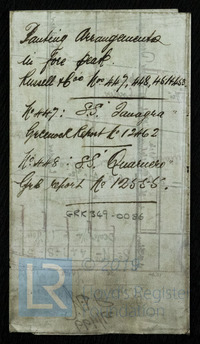 Panting Arrangements
in Fore peak.
Russell & Coo Nos 447, 448, 461 & 462
No 447: S.S. "Tanagra"
Greenock Report No 12462
No 448: S.S. "Quarnero"
Grk report No 12555.
GRK349-0086
LR
Lloyd's Register
Foundation